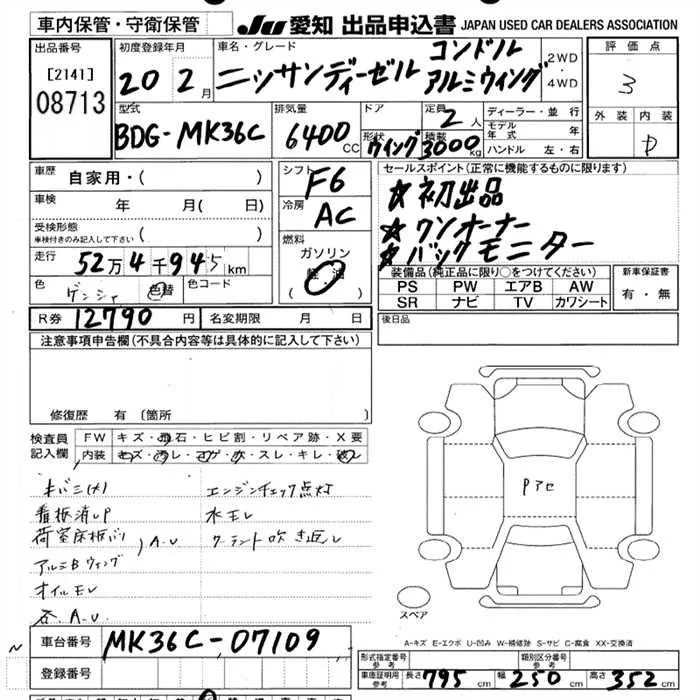 車内保管・守衛保管 JU 愛知 出品申込書 JAPAN USED CAR DEALERS ASSOCIATION
出品番号 [2141] 08713
初度登録年月 20 2月
車名・グレード ニッサンディーゼル コンドル アルミウィング
2WD・4WD
評価点 3
型式 BDG-MK36C
排気量 6400 CC
ドア 形状 ウイング
定員 2人
積載 3000kg
ディーラー・並行
モデル年式 年
ハンドル 左・右
外装 内装 D
車歴 自家用・( )
車検 年 月( 日)
受検形態 車検付きのみ記入して下さい ( )
走行 52万4千945km
色 ゲンシャ 色替 色コード
シフト F6
冷房 AC
燃料 ガソリン 軽油 ( )
セールスポイント(正常に機能するものに限ります)
☆初出品
☆ワンオーナー
☆バックモニター
装備品(純正品に限り○をつけてください) 新車保証書
PS PW エアB AW 有・無
SR ナビ TV カワシート
R券 12790円 名変期限 月 日
後日品
注意事項申告欄(不具合内容等は具体的に記入して下さい)
修復歴 有 [箇所
検査員記入欄 FW キズ・飛石・ヒビ割・リペア跡・X要
内装 キズ・汚レ・コゲ・穴・スレ・キレ・破レ
キバミ(メ) エンジンチェック点灯
看板消UP 水モレ
荷室床板バリ A.U クーラント吹き返し
アルミBウィング
オイルモレ
各 A.U
Pアセ
スペア
A-キズ E-エクボ U-凹み W-補修跡 S-サビ C-腐食 XX-交換済
車台番号 MK36C-07109
登録番号
形式指定番号 参考 類別区分番号 参考
車庫証明用 参考 長さ 795cm 幅 250cm 高さ 352cm